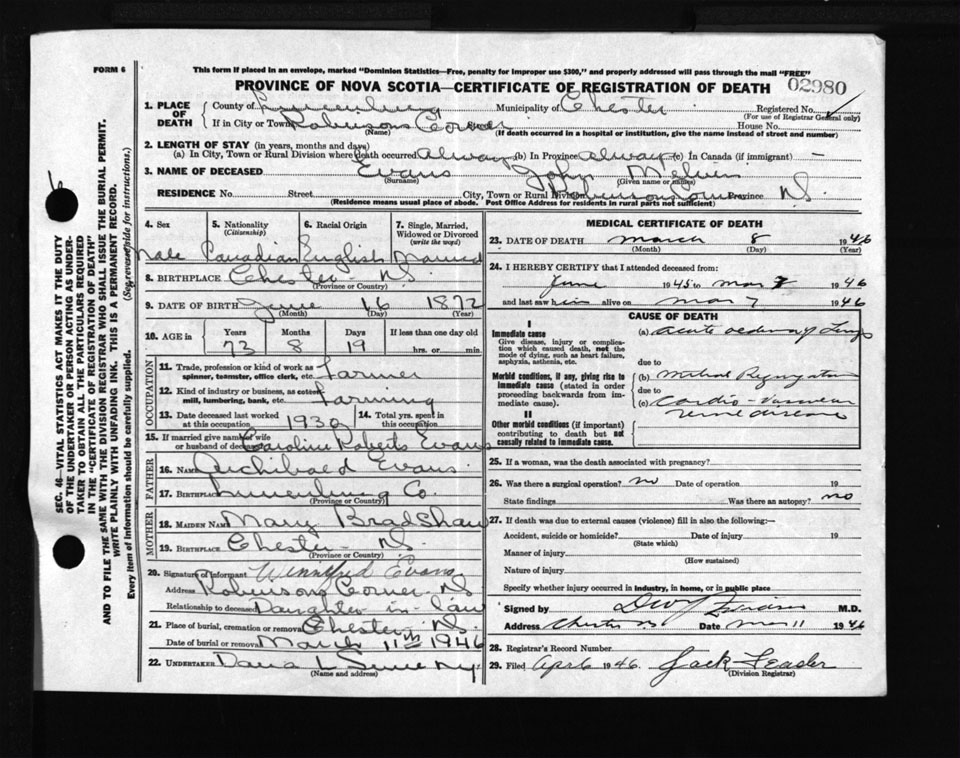 FORM 6
This form if placed in an envelope, marked "Dominion Statistics—Free, penalty for improper use $300," and properly addressed will pass through the mail "FREE"
PROVINCE OF NOVA SCOTIA—CERTIFICATE OF REGISTRATION OF DEATH 02980
1. PLACE OF DEATH
County of Lunenburg Municipality of Chester Registered No.
(For use of Registrar General only)
If in City or Town Robinsons Corner House No.
(Name) (If death occurred in a hospital or institution, give the name instead of street and number)
2. LENGTH OF STAY (in years, months and days)
(a) In City, Town or Rural Division where death occurred Always (b) In Province Always (c) In Canada (if immigrant) —
3. NAME OF DECEASED Evans John Melvin
(Surname) (Given name or names)
RESIDENCE No. Street City, Town or Rural Division Robinsons Corner Province NS
(Residence means usual place of abode. Post Office Address for residents in rural parts not sufficient)
4. Sex 5. Nationality (Citizenship) 6. Racial Origin 7. Single, Married, Widowed or Divorced (write the word)
Male Canadian English Married
8. BIRTHPLACE Chester - NS.
(Province or Country)
9. DATE OF BIRTH June 16 1872
(Month) (Day) (Year)
10. AGE in Years Months Days If less than one day old
73 8 19 hrs. or min.
OCCUPATION
11. Trade, profession or kind of work as spinner, teamster, office clerk, etc. Farmer
12. Kind of industry or business, as cotton mill, lumbering, bank, etc. Farming
13. Date deceased last worked at this occupation 1930 14. Total yrs. spent in this occupation
15. If married give name of wife or husband of deceased Caroline Roberts Evans
FATHER
16. NAME Archibald Evans.
17. BIRTHPLACE Lunenburg Co.
(Province or Country)
MOTHER
18. MAIDEN NAME Mary Bradshaw
19. BIRTHPLACE Chester - NS.
(Province or Country)
20. Signature of informant Winnifred Evans
Address Robinsons Corner - NS
Relationship to deceased Daughter-in-law
21. Place of burial, cremation or removal Chester, NS.
Date of burial or removal March 11th 1946
22. UNDERTAKER Dana L
(Name and address)
MEDICAL CERTIFICATE OF DEATH
23. DATE OF DEATH March 8 1946
(Month) (Day) (Year)
24. I HEREBY CERTIFY that I attended deceased from:
June 1945 to Mar 7 1946
and last saw him alive on Mar 7 1946
CAUSE OF DEATH
I
Immediate cause
Give disease, injury or complication which caused death, not the mode of dying, such as heart failure, asphyxia, asthenia, etc.
(a) Acute oedema of Lungs
due to
Morbid conditions, if any, giving rise to immediate cause (stated in order proceeding backwards from immediate cause).
(b) Mitral Regurgitation
due to
(c) Cardio-Vascular
renal disease
II
Other morbid conditions (if important) contributing to death but not causally related to immediate cause.
25. If a woman, was the death associated with pregnancy?
26. Was there a surgical operation? no Date of operation 19
State findings Was there an autopsy? no
27. If death was due to external causes (violence) fill in also the following:—
Accident, suicide or homicide? Date of injury 19
(State which)
Manner of injury
(How sustained)
Nature of injury
Specify whether injury occurred in industry, in home, or in public place
Signed by M.D.
Address Chester NS Date Mar 11 1946
28. Registrar's Record Number
29. Filed Apr 6 1946. Jack
(Division Registrar)
SEC. 46—VITAL STATISTICS ACT MAKES IT THE DUTY
OF THE UNDERTAKER OR PERSON ACTING AS UNDER-
TAKER TO OBTAIN ALL THE PARTICULARS REQUIRED
IN THE "CERTIFICATE OF REGISTRATION OF DEATH"
AND TO FILE THE SAME WITH THE DIVISION REGISTRAR WHO SHALL ISSUE THE BURIAL PERMIT.
WRITE PLAINLY WITH UNFADING INK. THIS IS A PERMANENT RECORD.
Every item of information should be carefully supplied. (See reverse side for instructions.)